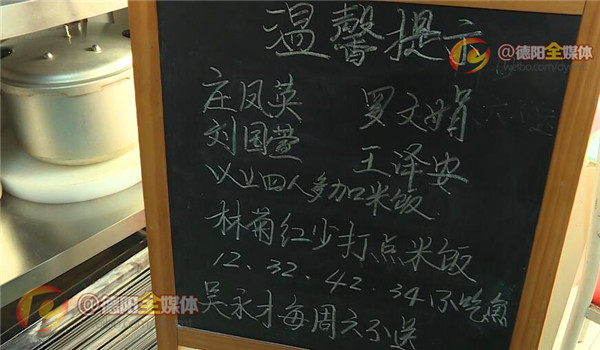 温馨提示
@德阳全媒体
庄凤英 罗文娟
刘国萱 王泽安
以上四人多加米饭
林菊红少打点米饭
12、32、42、34不吃鱼
吴永才每周六不送
@德阳全媒体